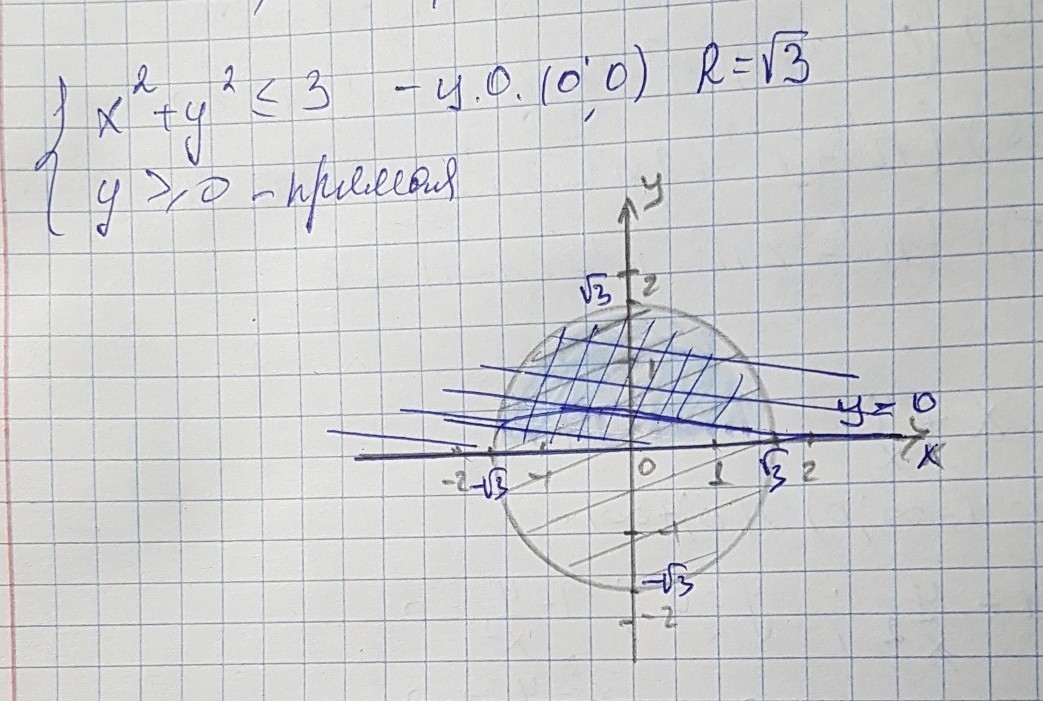 { x² + y² ≤ 3 – ц.о. (0; 0) R = √3
y ≥ 0 – прямая
y
√3 2
1
y = 0
-2 -√3 -1 0 1 √3 2 x
-1
-√3
-2